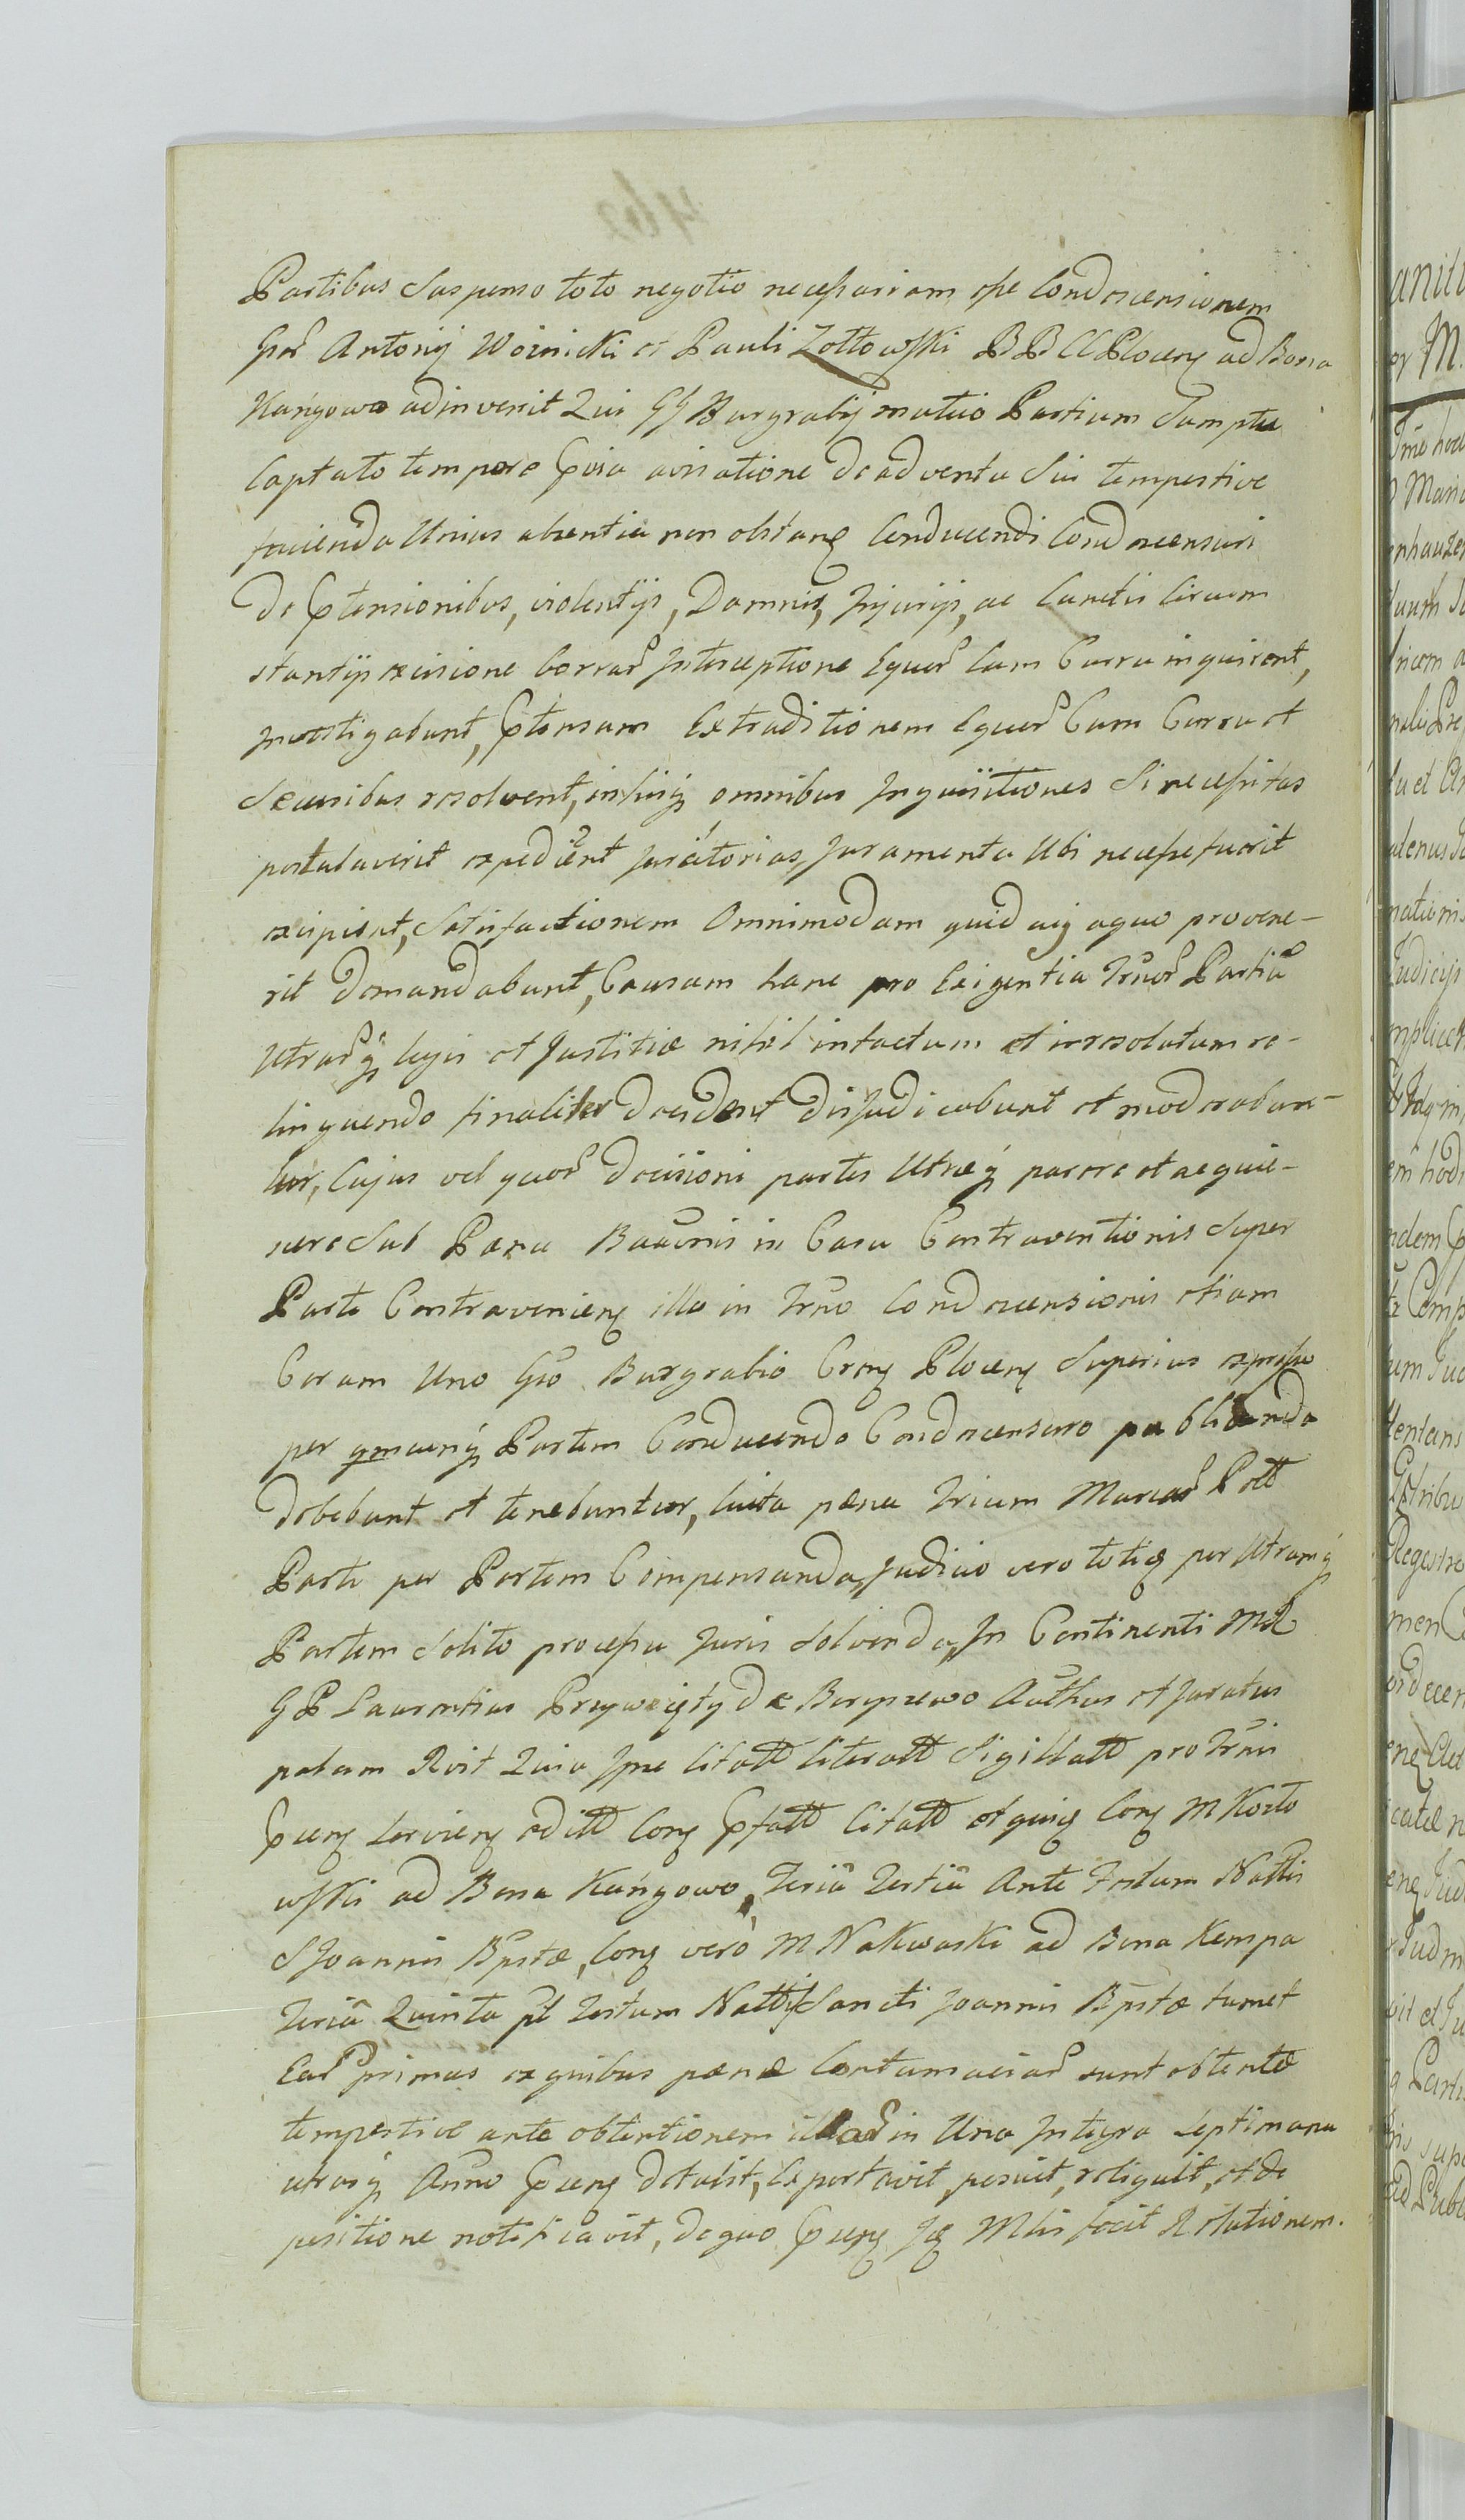 Partibus Suspenso toto negotio necessariam esse Condescensionem
Gnor Antonij Woźnicki et Pauli Zołtowski BB CC Plocen ad Bona
Kangowo adinvenit Qui GG Burgrabij mutuo Partium Sumptu
Captato tempore pvia avisatione de adventu Sui tempestive
facienda Unius absentia non obstanē Conducendi Condescensuri
De ptensionibus, violentijs, Damnis, Injurijs, ac Cunctis Circum
stantijs excisione borrar Interceptione Equor Cum Curru inquirent,
Investigabunt, ptensam Extraditionem Equor Cum Curru et
Securibus resolvent, in hisq omnibus Inquisitiones Si necessitas
postulaverit expedient Juratorias, Juramenta Ubi necesse fuerit
excipient, Satisfactionem Omnimodam quid cuiq a quo provene-
rit Demandabunt, Causam hanc pro Exigentia Trnor Partiu
Utrarq legis et Justitiæ nihil intactum et irresolutum re-
linquendo finaliter decident Disjudicabunt et moderabun-
tur, Cujus vel quor Decisioni partes Utræq parere et acquie-
scere Sub Pæna Banionis in Casu Contraventionis Super
Parte Contravenien illo in Trno Condescensionis etiam
Coram Uno Gno Burgrabio Cren Plocen Superius expresso
per qmcunq Partem Conducendo Condescensuro publicanda
Debebunt et tenebuntur, luita pæna trium Marcar Poll
Parti per Partem Compensanda, Judicio vero totiē per Utramq
Partem Solito processu Juris Solvenda, In Continenti
GP Laurentius Przywięzty de Authus et Juratus
palam Rvit Quia Ipse litatt literatt Sigillatt pro Trnis
pnen servien editt Con pfatt Citatt et quinē Con M Kozło
wski ad Bona Kangowo, Feria Tertia Ante Festum Nattis
S Joannis Bpstæ, Con vero M Nakwaski ad Bona Kempa
Feria Quinta pt Festum Nattis Sancti Joannis Bpstæ tumet
Ear primas ex quibus pænæ Contumaciar sunt obtentæ
tempestive ante obtentionem illar in Una Integra Septimana
utrasq Anno pnen detulit, Comportavit, posuit, reliquit, et de
positione notificavit, de quo pnen Jē Mlis fecit Rlationem.